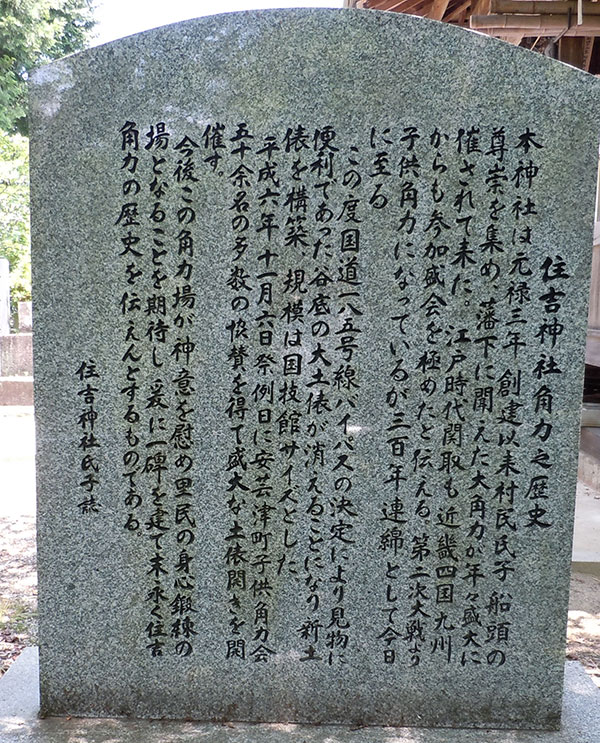 住吉神社角力之歴史
本神社は元禄三年 創建以来村民氏子 船頭の
尊崇を集め、藩下に聞えた大角力が年々盛大に
催されて来た。 江戸時代関取も近畿四国九州
からも参加盛会を極めたと伝える、第二次大戦より
子供角力になっているが三百年連綿として今日
に至る
この度国道一八五号線バイパスの決定により見物に
便利であった谷底の大土俵が消えることになり新土
俵を構築、規模は国技館サイズとした
平成六年十一月六日祭例日に安芸津町子供角力会
五十余名の多数の協賛を得て盛大な土俵開きを開
催す。
今後この角力場が神意を慰め里民の身心鍛練の
場となることを期待し爰に一碑を建て末永く住吉
角力の歴史を伝えんとするものである。
住吉神社氏子誌